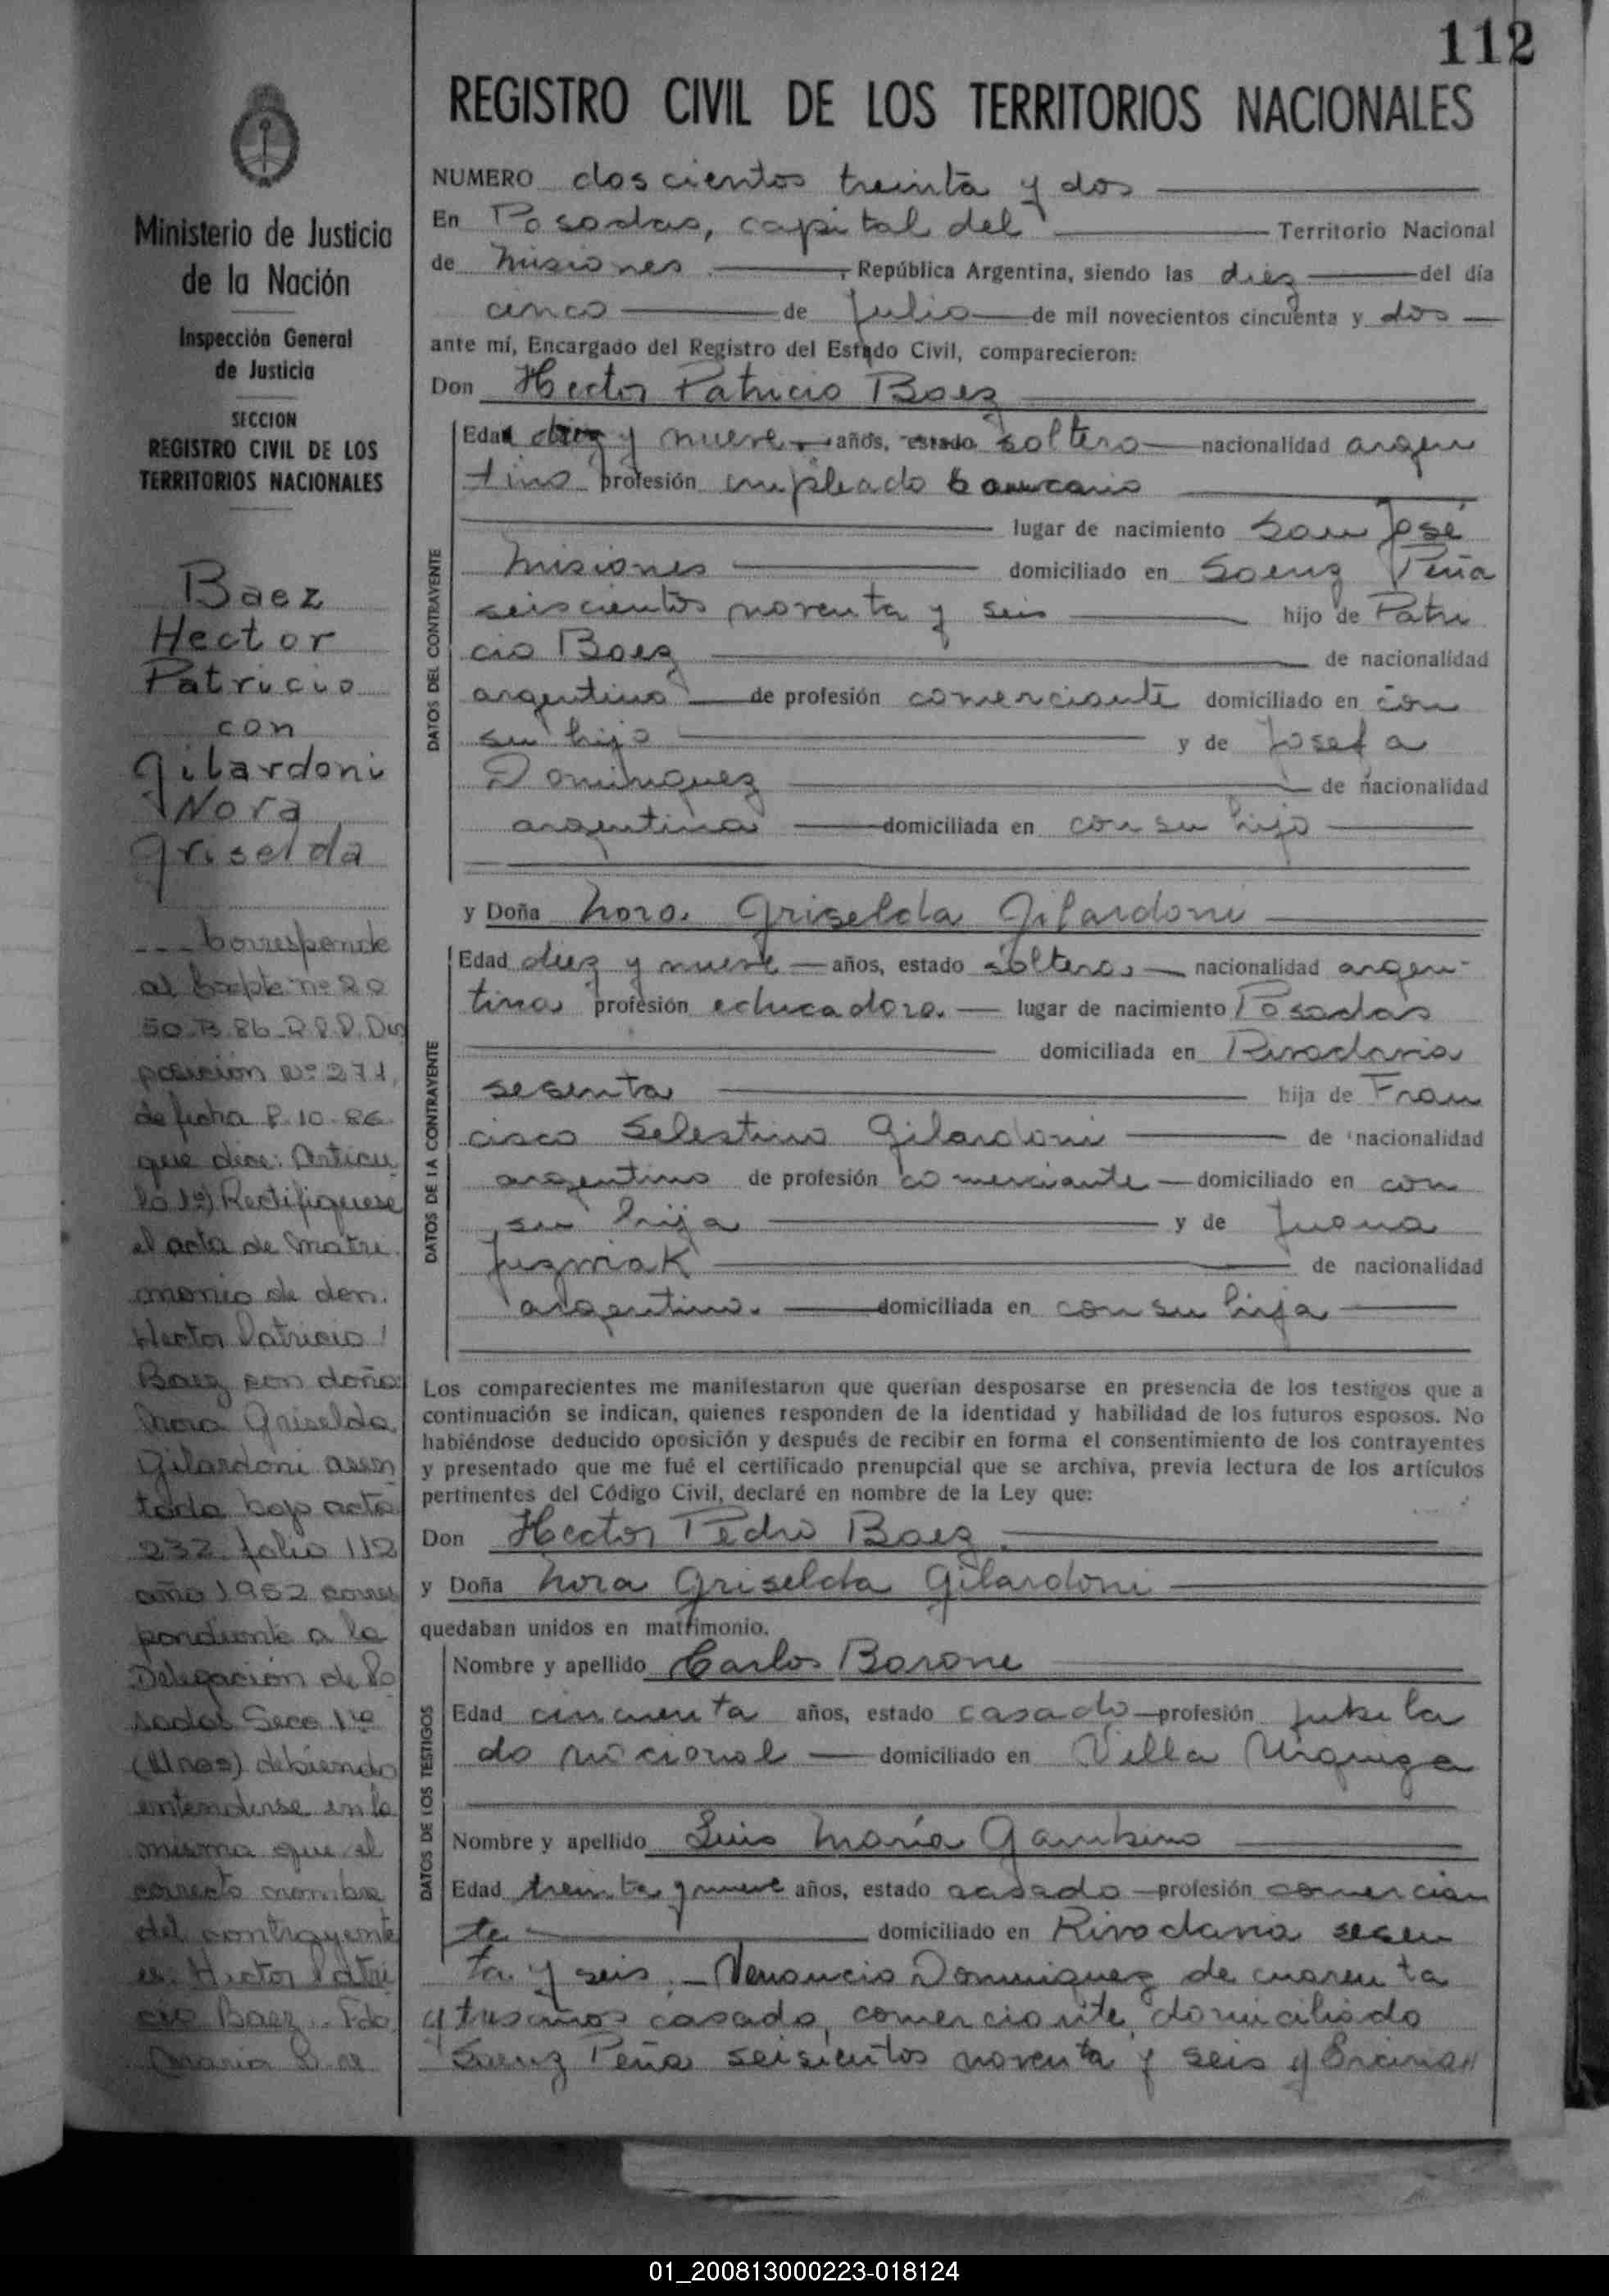 112
REGISTRO CIVIL DE LOS TERRITORIOS NACIONALES
Ministerio de Justicia
de la Nación
Inspección General
de Justicia
SECCION
REGISTRO CIVIL DE LOS
TERRITORIOS NACIONALES
Baez
Hector
Patricio
con
Gilardoni
Nora
Griselda
--- Corresponde
al Expte nº 20
50-B-86-R.P.P. Dis
posición Nº 271,
de fecha 8-10-86
que dice: Articu
lo 1º) Rectifiquese
el acta de Matri
monio de don.
Hector Patricio
Baez con doña:
Nora Griselda
Gilardoni asen
tada bajo acta
232 folio 112
año 1952 corres
pondiente a la
Delegación de Po
sadas Secc 1ra
(Mnes) debiendo
entenderse en la
misma que el
correcto nombre
del contrayente
es: Hector Patri
cio Baez.. Fdo
Maria
NUMERO doscientos treinta y dos
En Posadas, capital del Territorio Nacional
de Misiones, República Argentina, siendo las diez del día
cinco de Julio de mil novecientos cincuenta y dos
ante mí, Encargado del Registro del Estado Civil, comparecieron:
Don Hector Patricio Baez
DATOS DEL CONTRAYENTE
Edad diez y nueve años, estado soltero nacionalidad argen
tino profesión empleado bancario
lugar de nacimiento San José
Misiones domiciliado en Saenz Peña
seiscientos noventa y seis hijo de Patri
cio Baez de nacionalidad
argentino de profesión comerciante domiciliado en con
su hijo y de Josefa
Dominguez de nacionalidad
argentina domiciliada en con su hijo
y Doña Nora Griselda Gilardoni
DATOS DE LA CONTRAYENTE
Edad diez y nueve años, estado soltera nacionalidad argen-
tina profesión educadora. lugar de nacimiento Posadas
domiciliada en Rivadavia
sesenta hija de Fran
cisco Selestino Gilardoni de nacionalidad
argentino de profesión comerciante domiciliado en con
su hija y de Juana
Juzmak de nacionalidad
argentina. domiciliada en con su hija
Los comparecientes me manifestaron que querían desposarse en presencia de los testigos que a
continuación se indican, quienes responden de la identidad y habilidad de los futuros esposos. No
habiéndose deducido oposición y después de recibir en forma el consentimiento de los contrayentes
y presentado que me fué el certificado prenupcial que se archiva, previa lectura de los artículos
pertinentes del Código Civil, declaré en nombre de la Ley que:
Don Hector Pedro Baez
y Doña Nora Griselda Gilardoni
quedaban unidos en matrimonio.
DATOS DE LOS TESTIGOS
Nombre y apellido Carlos Barone
Edad cincuenta años, estado casado profesión jubila
do nacional domiciliado en Villa Urquiza
Nombre y apellido Luis María Gambino
Edad treinta y nueve años, estado casado profesión comercian
te domiciliado en Rivadavia sesen
ta y seis.- Venancio Dominguez de cuarenta
y tres años casado, comerciante, domiciliado
Saenz Peña seisientos noventa y seis y Encina
01_200813000223-018124